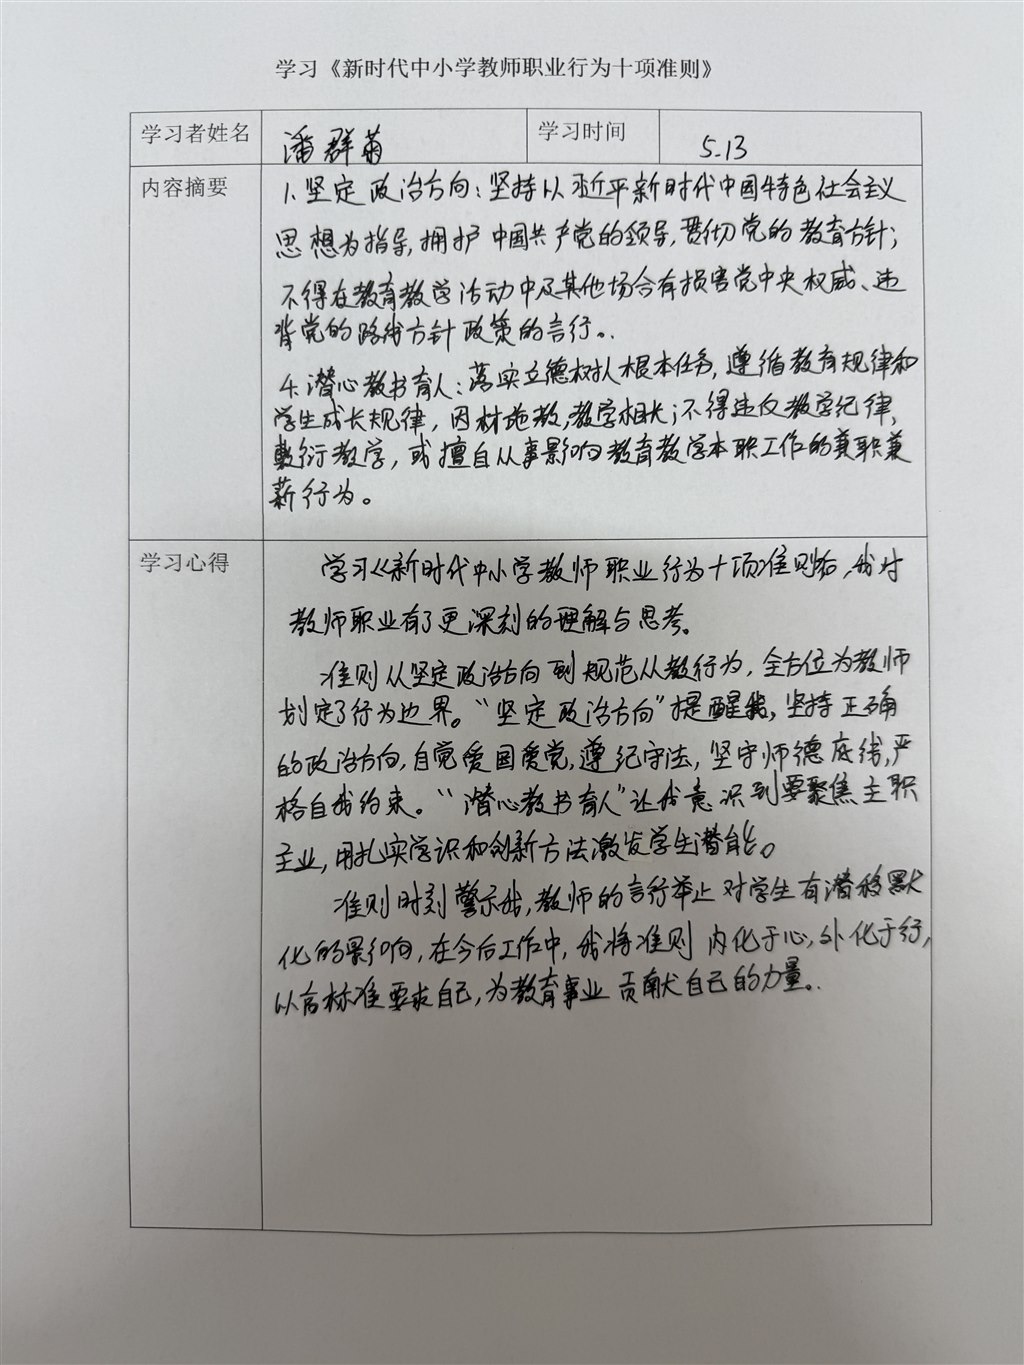 学习《新时代中小学教师职业行为十项准则》
学习者姓名 潘群菊 学习时间 5.13
内容摘要
1. 坚定政治方向：坚持以习近平新时代中国特色社会主义
思想为指导，拥护中国共产党的领导，贯彻党的教育方针；
不得在教育教学活动中及其他场合有损害党中央权威、违
背党的路线方针政策的言行。
4. 潜心教书育人：落实立德树人根本任务，遵循教育规律和
学生成长规律，因材施教，教学相长；不得违反教学纪律，
敷衍教学，或擅自从事影响教育教学本职工作的兼职兼
薪行为。
学习心得
学习《新时代中小学教师职业行为十项准则》后，我对
教师职业有了更深刻的理解与思考。
准则从坚定政治方向到规范从教行为，全方位为教师
划定了行为边界。“坚定政治方向”提醒我，坚持正确
的政治方向，自觉爱国爱党，遵纪守法，坚守师德底线，严
格自我约束。“潜心教书育人”让我意识到要聚焦主职
主业，用扎实学识和创新方法激发学生潜能。
准则时刻警示我，教师的言行举止对学生有潜移默
化的影响，在今后工作中，我将准则内化于心，外化于行，
以高标准要求自己，为教育事业贡献自己的力量。